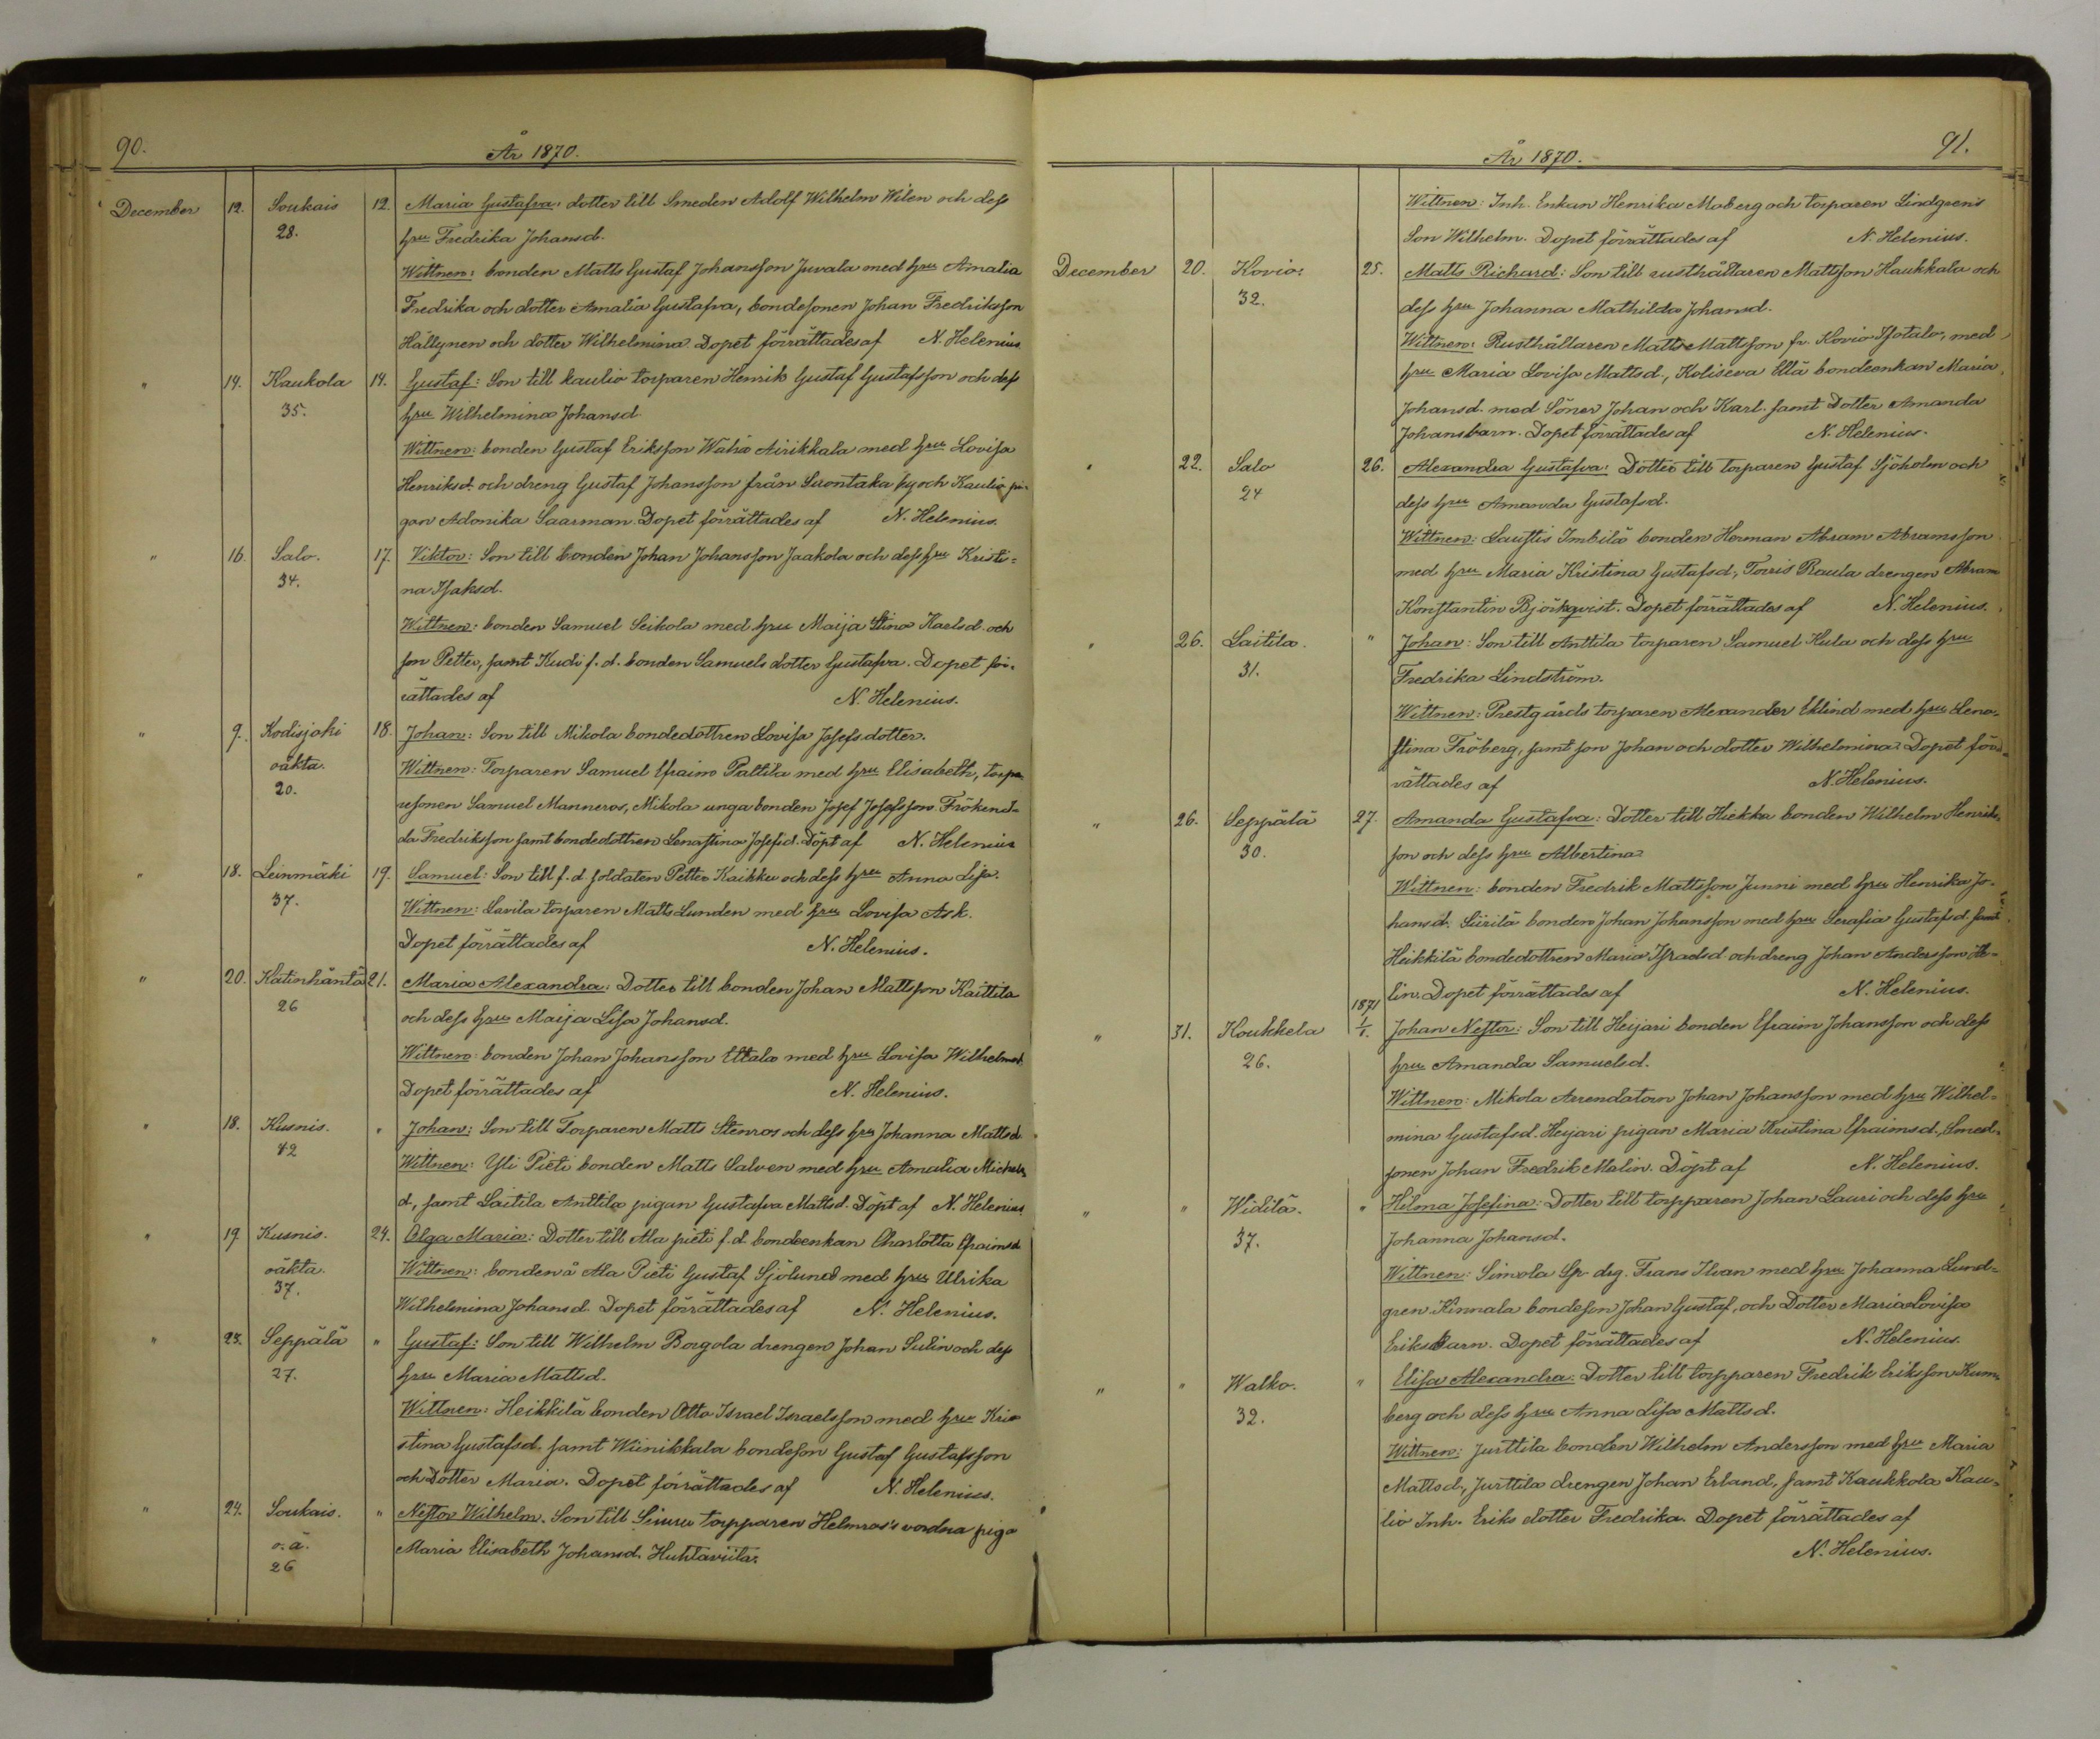 90.
År 1870.
December 12. Soukais 12. Maria Gustafva: dotter till Smeden Adolf Wilhelm Wilen och dess
28. hru Fredrika Johansd.
Wittnen: bonden Matts Gustaf Johansson Juvala med hru Amalia
Fredrika och dotter Amalia Gustafva, bondesonen Johan Fredriksson
Hällynen och dotter Wilhelmina Dopet förrättades af N. Helenius
" 14. Kaukola 14. Gustaf: Son till kaulio torparen Henrik Gustaf Gustafsson och dess
35. hru Wilhelmina Johansd.
Wittnen: bonden Gustaf Eriksson Wähä Airikkala med hru Lovisa
Henriksd. och dreng Gustaf Johansson från Suontaka by och Kaulio pi-
gan Adonika Saarman. Dopet förrättades af N. Helenius.
" 16. Salo. 17. Viktor: Son till bonden Johan Johansson Jaakola och dess hru Kristi=
34. na Isaksd.
Wittnen: bonden Samuel Seikola med hru Maija Stina Karlsd. och
son Petter, samt Kudi f. d. bonden Samuels dotter Gustafva. Dopet för-
rättades af N. Helenius.
" 9. Kodisjoki 18. Johan: Son till Mikola bondedottren Lovisa Josefsdotter.
oäkta. Wittnen: Torparen Samuel Efraim Palttila med hru Elisabeth, torpa-
20. resonen Samuel Manneros, Mikola unga bonden Josef Josefsson
da Fredriksson samt bondedottren Lenastina Josefsd. Döpt af N. Helenius
" 18. Leinmäki 19. Samuel: Son till f. d. soldaten Petter Kaikku och dess hru Anna Lisa.
37. Wittnen: Lavila torparen Matts Lunden med hru Lovisa Ask.
Dopet förrättades af N. Helenius.
" 20. Katinhäntä 21. Maria Alexandra: Dotter till bonden Johan Mattsson Kaittila
26 och dess hru Maija Lisa Johansd.
Wittnen: bonden Johan Johansson Uttala med hru Lovisa Wilhelmsd.
Dopet förrättades af N. Helenius.
" 18. Kusnis. " Johan: Son till Torparen Matts Stenros och dess hru Johanna Mattsd
42 Wittnen: Yli Pieti bonden Matts Salven med hru Amalia Michels
d., samt Laitila Anttila pigan Gustafva Mattsd. Döpt af N. Helenius
" 19. Kusnis. 24. Olga Maria: Dotter till Ala pieti f. d. bondeenkan Charlotta Efraimsd.
oäkta. Wittnen: bonden å Ala Pieti Gustaf Sjölund med hru Ulrika
37. Wilhelmina Johansd. Dopet förrättades af N. Helenius.
" 23. Seppälä " Gustaf: Son till Wilhelm Borgola drengen Johan Sulin och dess
27. hru Maria Mattsd.
Wittnen: Heikkilä bonden Otto Israel Israelsson med hru Kri-
stina Gustafsd. samt Wiinikkala bondeson Gustaf Gustafsson
och Dotter Maria. Dopet förrättades af N. Helenius.
" 24. Soukais. " Nestor Wilhelm. Son till torpparen Helmros's vordna piga
o. ä. Maria Elisabeth Johansd. Huhtaviita.
26
91.
År 1870.
Wittnen: Inh. Enkan Henrika Moberg och torparen Lindgren's
Son Wilhelm. Dopet förrättades af N. Helenius.
December 20. Kovio. 25. Matts Richard: Son till rusthållaren Mattsson Haukkala och
32. dess hru Johanna Mathilda Johansd.
Wittnen: Rusthållaren Matts Mattsson fr. Kovio Isotalo, med
hru Maria Lovisa Mattsd., Koliseva Ellä bondeenkan Maria
Johansd. med Söner Johan och Karl. samt Dotter Amanda
Johansbarn. Dopet förrättades af N. Helenius.
" 22. Salo 26. Alexandra Gustafva: Dotter till torparen Gustaf Sjöholm och
24 dess hru Amanda Gustafsd.
Wittnen: Saustis Imbilä bonden Herman Abram Abramsson
med hru Maria Kristina Gustafsd., Toris Raula drengen Abram
Konstantin Björkqvist. Dopet förrättades af N. Helenius.
" 26. Laitila. " Johan: Son till Anttila torparen Samuel Kula och dess hru
31. Fredrika Lindström.
Wittnen: Prestgårds torparen Alexander Eklind med hru Lena-
stina Fröberg, samt son Johan och dotter Wilhelmina. Dopet för-
rättades af N. Helenius.
" 26. Seppälä 27. Amanda Gustafva: Dotter till Hiekka bonden Wilhelm Henriks-
30. son och dess hru Albertina
Wittnen: bonden Fredrik Mattsson Junni med hru Henrika Jo-
hansd. Siirilä bonden Johan Johansson med hru Serafia Gustafsd. samt
Heikkilä bondedottren Maria Israelsd. och dreng Johan Andersson He-
lin. Dopet förrättades af N. Helenius.
1871
" 31. Koukkela 1/1. Johan Nestor: Son till Heijari bonden Efraim Johansson och dess
26. hru Amanda Samuelsd.
Wittnen: Mikola Arrendatorn Johan Johansson med hru Wilhel=
mina Gustafsd. Heijari pigan Maria Kristina Efraimsd., Smed-
sonen Johan Fredrik Malin. Döpt af N. Helenius.
" " Widilä. " Hilma Josefina: Dotter till torpparen Johan Lauri och dess hru
37. Johanna Johansd.
Wittnen: Simola Sp. drg. Frans Ilvan med hru Johanna Lund-
gren. Kinnala bondeson Johan Gustaf, och Dotter Maria Lovisa
Eriksbarn. Dopet förrättades af N. Helenius.
" " Walko. " Elisa Alexandra: Dotter till torpparen Fredrik Eriksson Kum-
32. berg och dess hru Anna Lisa Mattsd.
Wittnen: Jurttila bonden Wilhelm Andersson med hru Maria
Mattsd, Jurttila drengen Johan Erland, samt Kaukkola Kau-
lio Inh. Eriks dotter Fredrika. Dopet förrättades af
N. Helenius.